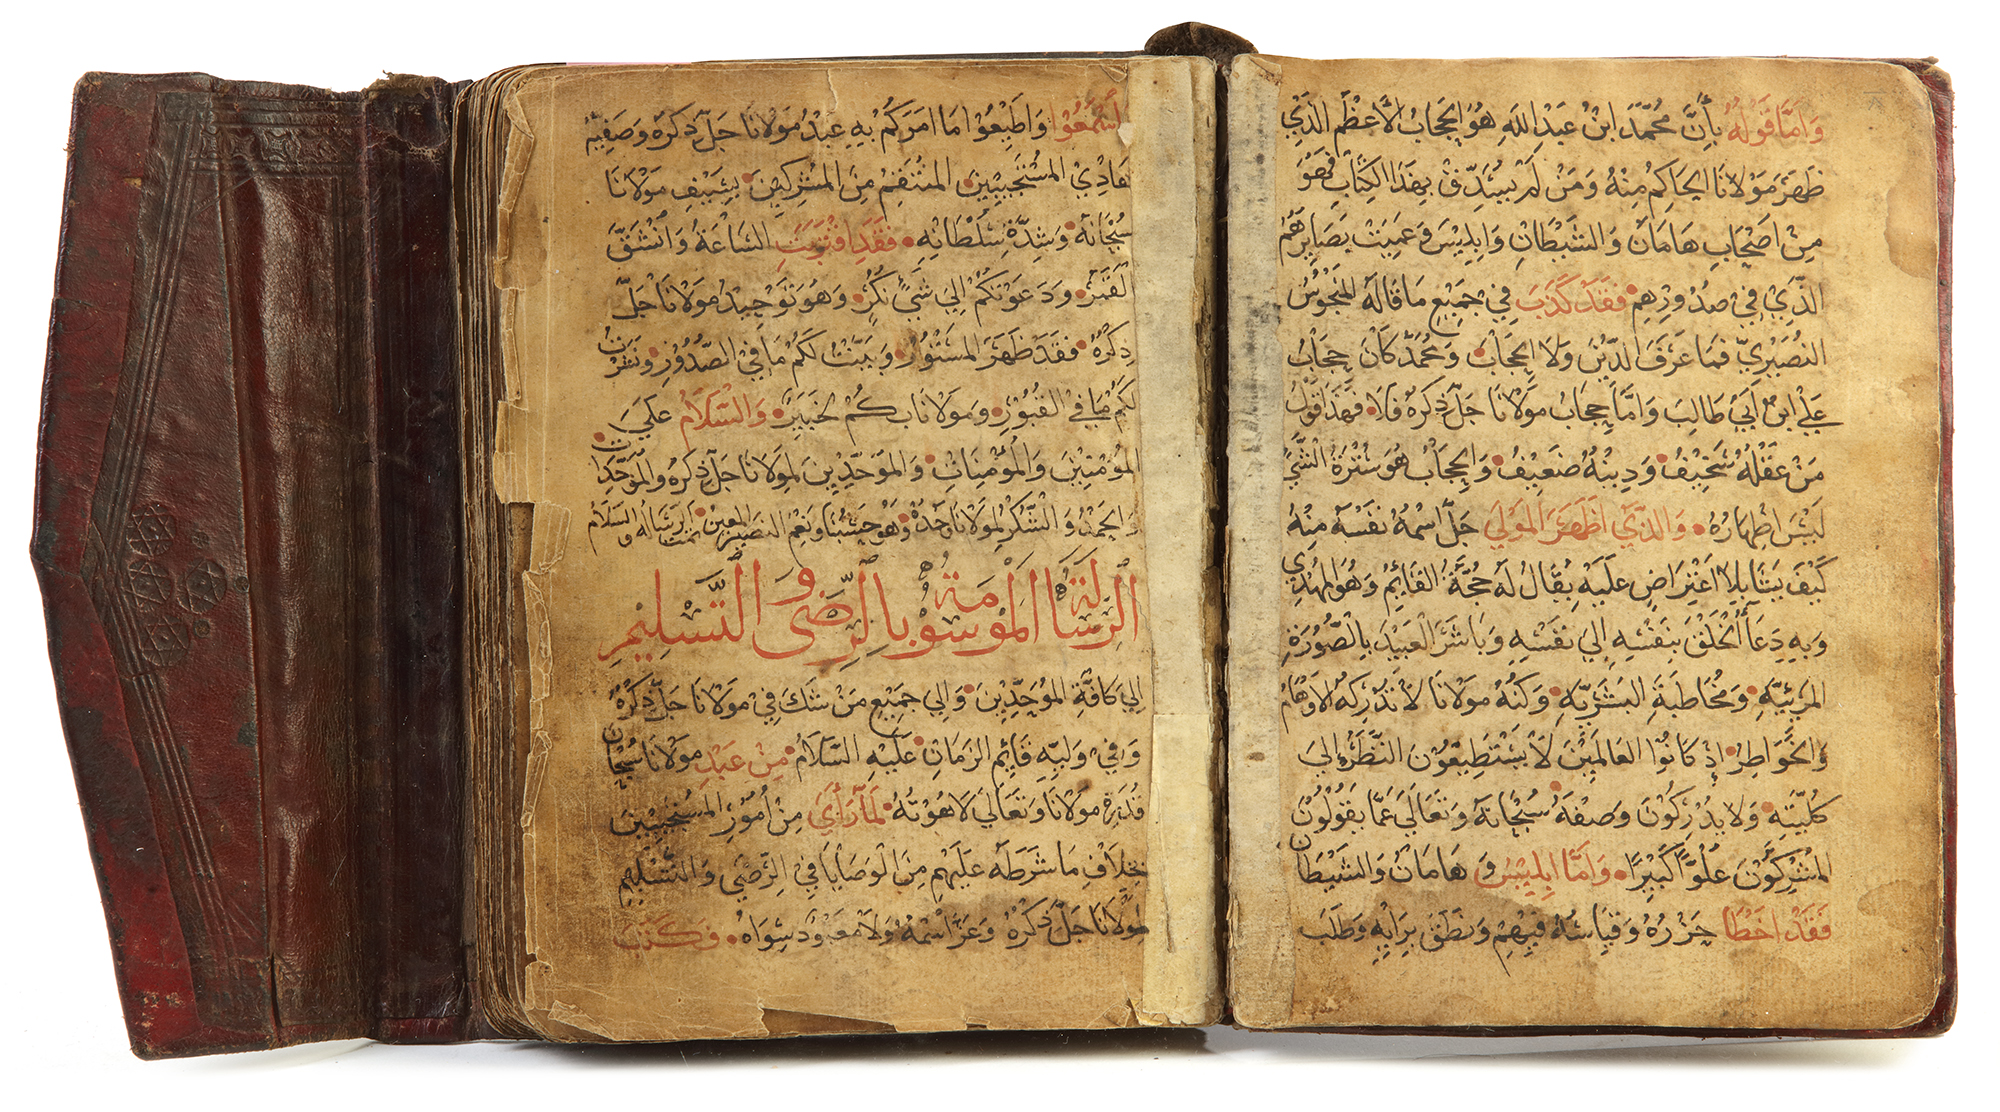 وَامَّا قَوْلُهُ بِأَنَّ مُحَمَّدَ ابْنُ عَبْدِ اللهِ هُوَ الحِجَابُ لَاعْظَمُ الَّذِي
ظَهَرَ مَوْلَانَا الحَاكِمُ مِنْهُ وَمَنْ لَمْ يَصْدِّقْ بِهَذَا الكِتَابِ فَهُوَ
مِنْ اصْحَابِ هَامَانَ وَالشَّيْطَانِ وَابْلِيسَ وَعَمِيَتْ بَصَايِرَهُمْ
الَّذِي فِي صُدُورِهِم فَقَدْ كَذَبَ فِي جَمِيعِ مَا قَالَهُ المَجُوسُ
النُّصَيْرِيّ فَمَا عَرَفَ الدِّينَ وَلَا الحِجَابَ وَمُحَمَّدٌ كَانَ حِجَابُ
عَلِي ابْنُ ابِي طَالِبَ وَامَّا حِجَابُ مَوْلَانَا جَلَّ ذِكْرُهُ فَلَا فَهَذَا قَوْلُ
مَنْ عَقْلُهُ سَخِيفٌ وَدِينُهُ ضَعِيفٌ وَالحِجَابُ هُوَ سُتْرَةُ الشَّيْ
لَيْسَ اظْهَارُهُ وَالَّذِي اظْهَرَ المَوْلَي جَلَّ اسْمُهُ نَفْسَهُ مِنْهُ
كَيْفَ يَشَا بِلَا اعْتِرَاضٍ عَلَيْهِ يُقَالُ لَهُ حُجَّةُ القَايِمُ وَهُوَ المَهْدِي
وَبِهِ دَعَا الخَلْقَ بِنَفْسِهِ الِي نَفْسِهِ وَبَاشَرَ العَبِيدَ بِالصُّورَةِ
المَرْئِيَّةِ وَمُخَاطَبَةِ البَشَرِيَّةِ وَكُنْهُ مَوْلَانَا لَا تُدْرِكُهُ الاوْهَامُ
وَالخَوَاطِرُ اِذْ كَانُوا العَالَمِينَ لَا يَسْتَطِيعُونَ النَّظَرُ الِيَ
كُلِّيَّتِهِ وَلَا يُدْرِكُونَ وَصْفَهُ سُبْحَانَهُ وَتَعَالَي عَمَّا يَقُولُونَ
المُشْرِكُونَ عُلُوّاً كَبِيْرًا وَامَّا ابْلِيسُ وَ هَامَانُ وَالشَّيْطَانُ
فَقَدْ اخْطَا حِزْرُهُ وَقِيَاسُهُ فِيهِمْ وَنَطَقَ بِرَايِهِ وَطَلَبَ
اسْمَعُوا وَاطِيعُوا مَا امَرَكُمْ بِهِ عَبْدُ مَوْلَانَا جَلَّ ذِكْرُهُ وَصَفِيُّهُ
هَادِي المُسْتَجِيبِينَ المُنْتَقِمُ مِنَ المُشْرِكِينَ بِسَيْفِ مَوْلَانَا
سُبْحَانَهُ وَشِدَّةِ سُلْطَانِهِ فَقَدِ اقْتَرَبَتِ السَّاعَةُ وَانْشَقَّ
القَمَرُ وَدَعَوْتَكُمْ الِي شَيْءٍ نُكُرٍ وَهُوَ تَوْحِيدُ مَوْلَانَا جَلَّ
ذِكْرُهُ فَقَدْ ظَهَرَ المَسْتُورُ وَبَيَّنْتُ لَكُمْ مَا فِي الصُّدُورِ وَنَشَرْتُ
لَكُمْ مَا فِي القُبُورِ وَمَوْلَانَا بِكُمْ لَخَبِيرٌ وَالسَّلَامُ عَلَيَ
المُؤْمِنِينَ وَالمُؤْمِنَاتِ وَالمُوَحِّدِينَ لِمَوْلَانَا جَلَّ ذِكْرُهُ وَالمُوَحِّدَاتِ
وَالحَمْدُ وَالشُّكْرُ لِمَوْلَانَا وَحْدَهُ وَهُوَ حَسْبُنَا وَنِعْمَ النَّصِيرُ المُعِينُ تَمَّتِ الرِّسَالَة وَالسَّلَامُ
الرِّسَالَةُ المَوْسُومَةُ بِالرِّضَى وَالتَّسْلِيمِ
الِي كَافَّةِ المُوَحِّدِينَ وَالِي جَمِيعِ مَنْ شَكَ فِي مَوْلَانَا جَلَّ ذِكْرُهُ
وَفِي وَلِيِّهِ قَايِمُ الزَّمَانِ عَلَيْهِ السَّلَامُ مِنْ عَبْدِ مَوْلَانَا سُبْحَانَ
قُدْرَةِ مَوْلَانَا وَتَعَالَي لَاهُوتُهُ لَمَّا رَأَي مِنْ أُمُورِ المُسْتَجِيبِينَ
بِخِلَافِ مَا شَرَطَهُ عَلَيْهِمْ مِنَ الوَصَايَا فِي الرِّضَي وَالتَّسْلِيمِ
لِمَوْلَانَا جَلَّ ذِكْرُهُ وَعَزَّ اسْمُهُ وَلَا مَعْبُودَ سِوَاهُ فَكَتَبَ